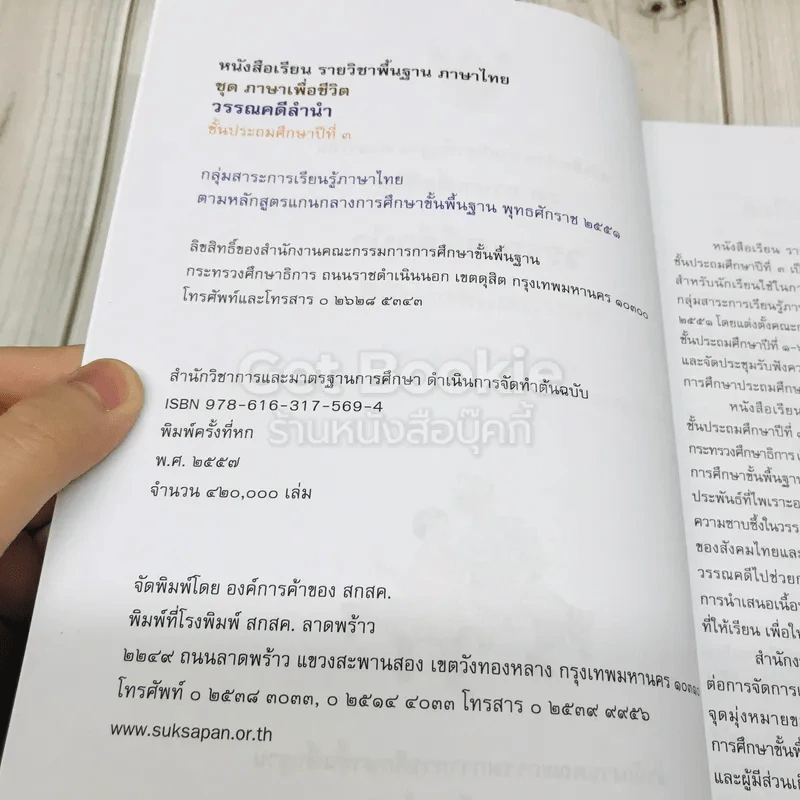 หนังสือเรียน รายวิชาพื้นฐาน ภาษาไทย
ชุด ภาษาเพื่อชีวิต
วรรณคดีลำนำ
ชั้นประถมศึกษาปีที่ ๓
กลุ่มสาระการเรียนรู้ภาษาไทย
ตามหลักสูตรแกนกลางการศึกษาขั้นพื้นฐาน พุทธศักราช ๒๕๕๑
ลิขสิทธิ์ของสำนักงานคณะกรรมการการศึกษาขั้นพื้นฐาน
กระทรวงศึกษาธิการ ถนนราชดำเนินนอก เขตดุสิต กรุงเทพมหานคร ๑๐๓๐๐
โทรศัพท์และโทรสาร ๐ ๒๖๒๘ ๕๓๔๓
Got Bookie
ร้านหนังสือบุ๊คกี้
สำนักวิชาการและมาตรฐานการศึกษา ดำเนินการจัดทำต้นฉบับ
ISBN 978-616-317-569-4
พิมพ์ครั้งที่หก
พ.ศ. ๒๕๕๗
จำนวน ๔๒๐,๐๐๐ เล่ม
จัดพิมพ์โดย องค์การค้าของ สกสค.
พิมพ์ที่โรงพิมพ์ สกสค. ลาดพร้าว
๒๒๔๙ ถนนลาดพร้าว แขวงสะพานสอง เขตวังทองหลาง กรุงเทพมหานคร ๑๐๓๑๐
โทรศัพท์ ๐ ๒๕๓๘ ๓๐๓๓, ๐ ๒๕๑๔ ๔๐๓๓ โทรสาร ๐ ๒๕๓๙ ๙๙๕๖
www.suksapan.or.th
หนังสือเรียน
ชั้นประถมศึกษาปีที่ ๓
สำหรับนักเรียนใช้ในการ
กลุ่มสาระการเรียนรู้ภาษา
๒๕๕๑ โดยแต่งตั้งคณะ
ชั้นประถมศึกษาปีที่ ๑-๖
และจัดประชุมรับฟังความ
การศึกษาประถมศึกษา
หนังสือเรียน
ชั้นประถมศึกษาปีที่
กระทรวงศึกษาธิการ
การศึกษาขั้นพื้นฐาน
ประพันธ์ที่ไพเราะ
ความซาบซึ้งในวรรณ
ของสังคมไทยและ
วรรณคดีไปช่วย
การนำเสนอเนื้อ
ที่ให้เรียน เพื่อให้
สำนักงาน
ต่อการจัดการ
จุดมุ่งหมายของ
การศึกษาขั้นพื้น
และผู้มีส่วน